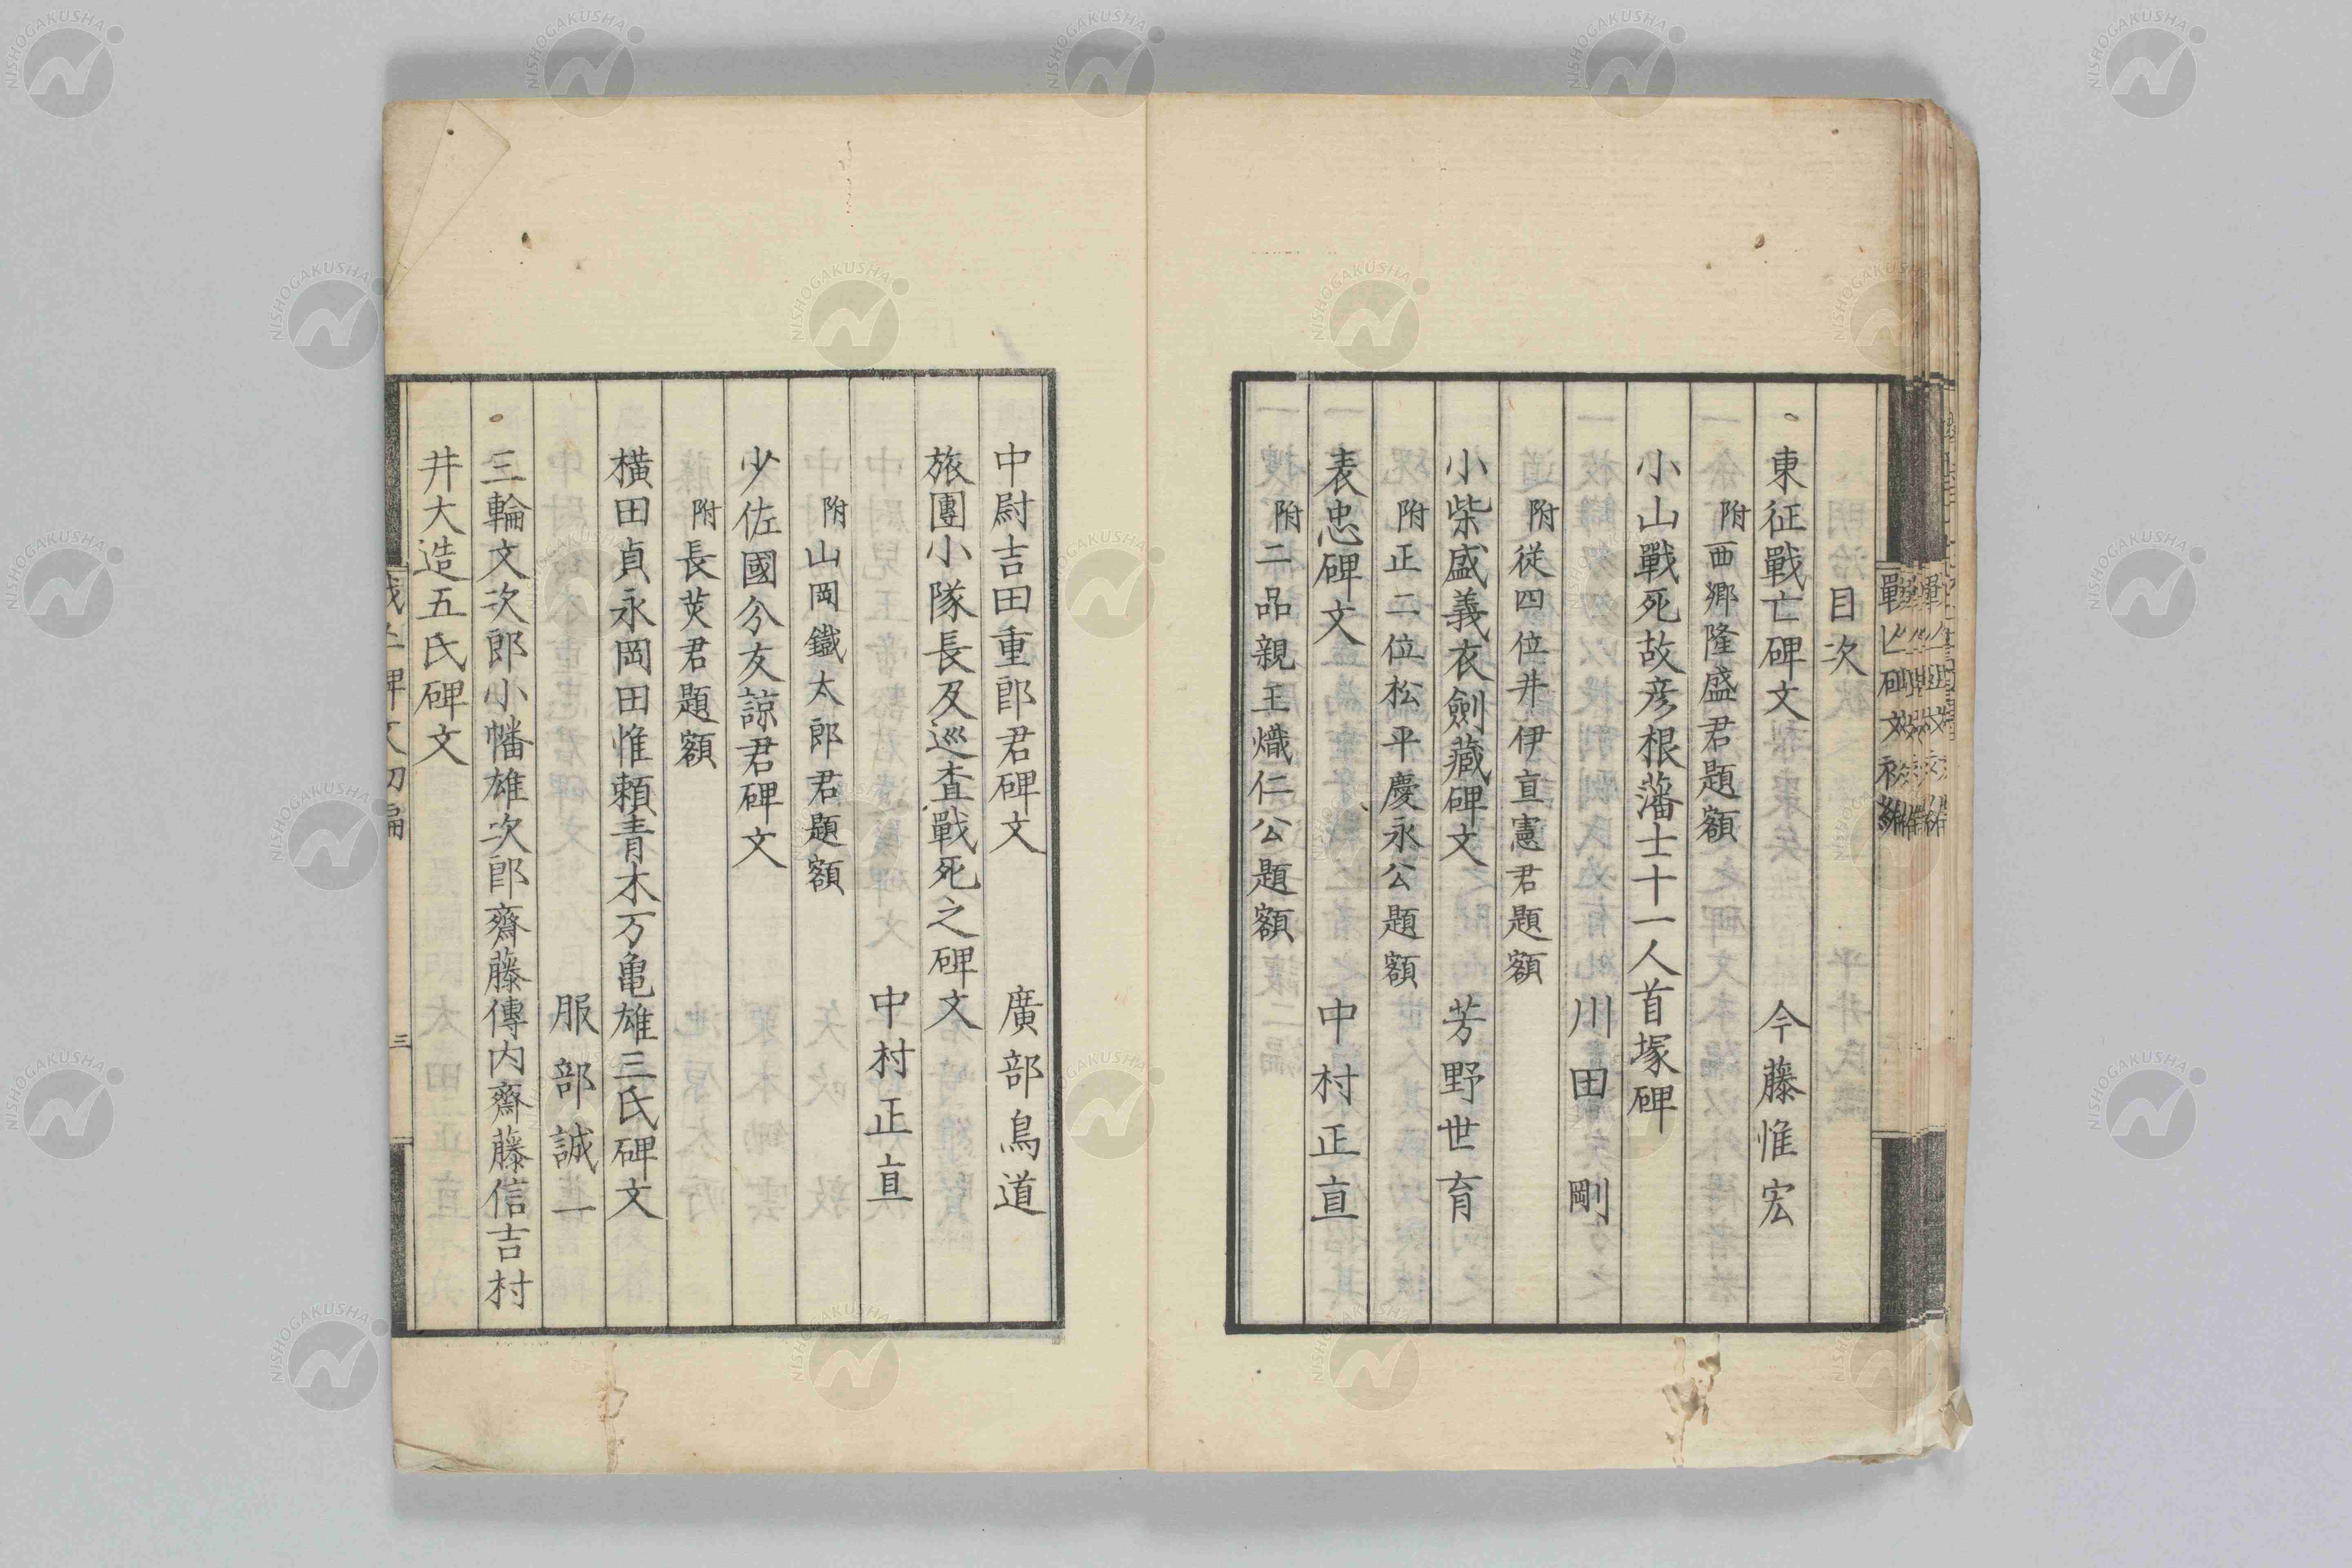 目次
東征戰亡碑文 今藤惟宏
附西郷隆盛君題額
小山戰死故彦根藩士十一人首塚碑
川田剛
附従四位井伊直憲君題額
小柴盛義衣劍藏碑文 芳野世育
附正二位松平慶永公題額
表忠碑文 中村正直
附二品親王熾仁公題額
中尉吉田重郎君碑文 廣部鳥道
旅團小隊長及巡査戰死之碑文
中村正直
附山岡鐵太郎君題額
少佐國分友諒君碑文
附長炗君題額
横田貞永岡田惟頼青木万亀雄三氏碑文
服部誠一
三輪文次郎小幡雄次郎齋藤傳内齋藤信吉村
井大造五氏碑文
三
NISHOGAKUSHA